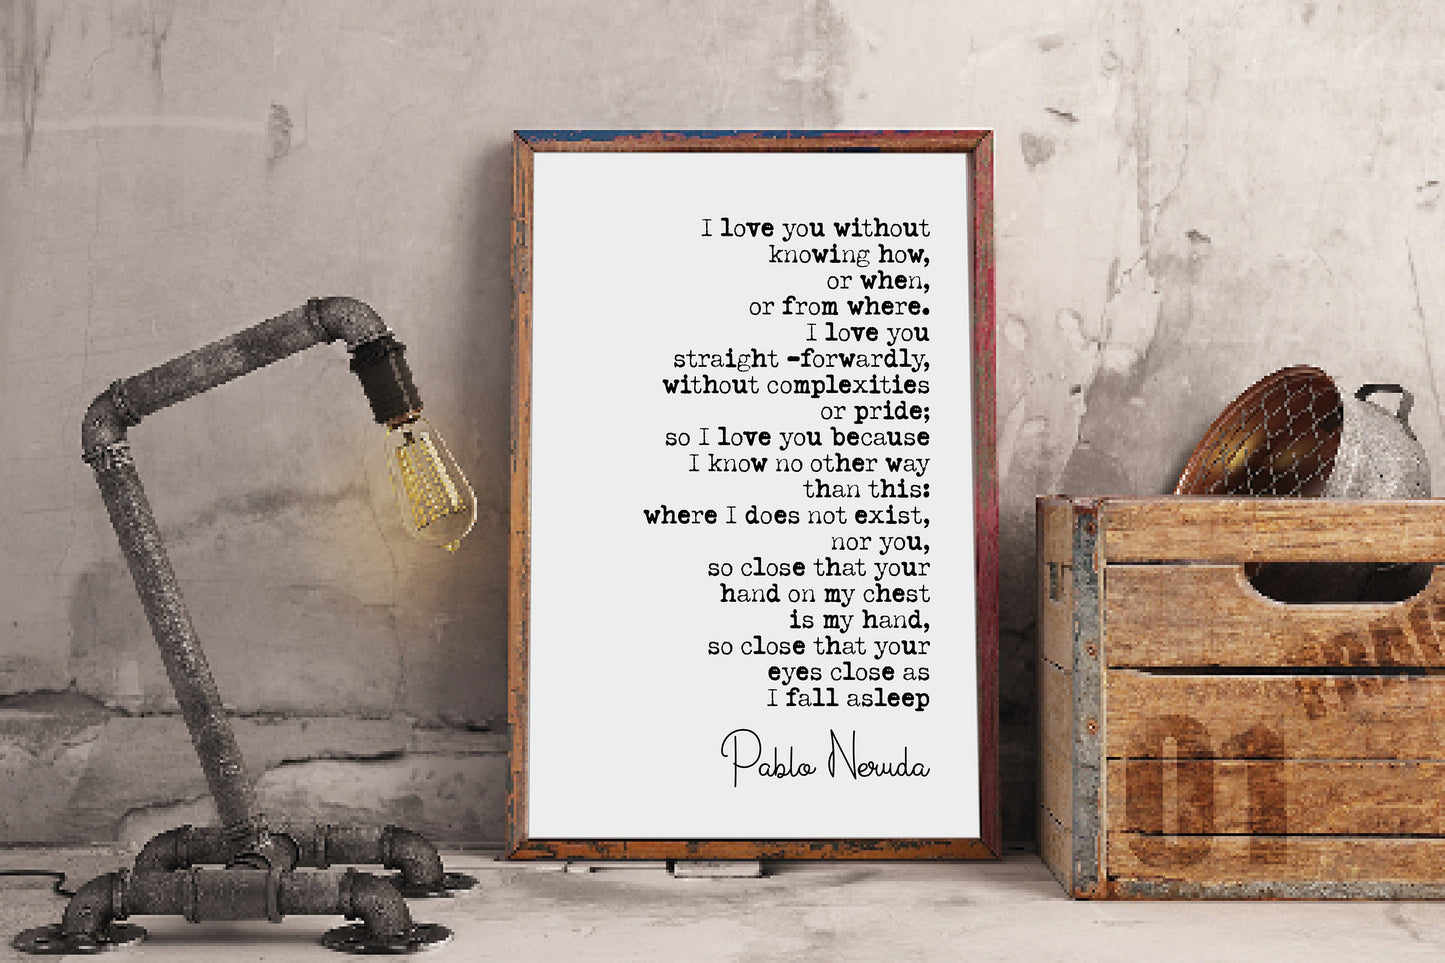 I love you without
knowing how,
or when,
or from where.
I love you
straight -forwardly,
without complexities
or pride;
so I love you because
I know no other way
than this:
where I does not exist,
nor you,
so close that your
hand on my chest
is my hand,
so close that your
eyes close as
I fall asleep
Pablo Neruda
01